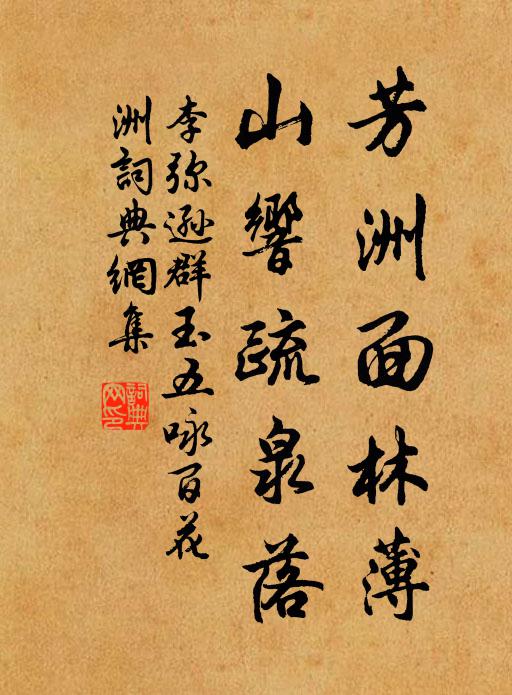 芳洲面林薄
山響疏泉落
李弥遜群玉五咏百花
洲詞典網集
詞典
网印